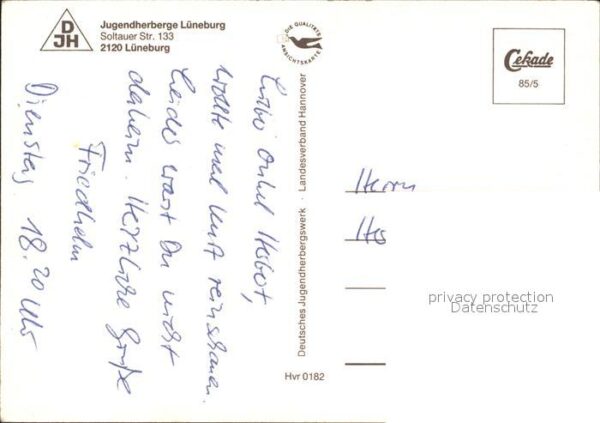 DJH
Jugendherberge Lüneburg
Soltauer Str. 133
2120 Lüneburg
DIE QUALITÄTS
ANSICHTSKARTE
Cekade
85/5
Lieber Onkel Herbert,
wollte mal kurz reinschauen.
Leider warst Du nicht
daheim. Herzliche Grüße
Friedhelm
Dienstag 18.20 Uhr
Deutsches Jugendherbergswerk · Landesverband Hannover
Herrn
He
privacy protection
Datenschutz
Hvr 0182